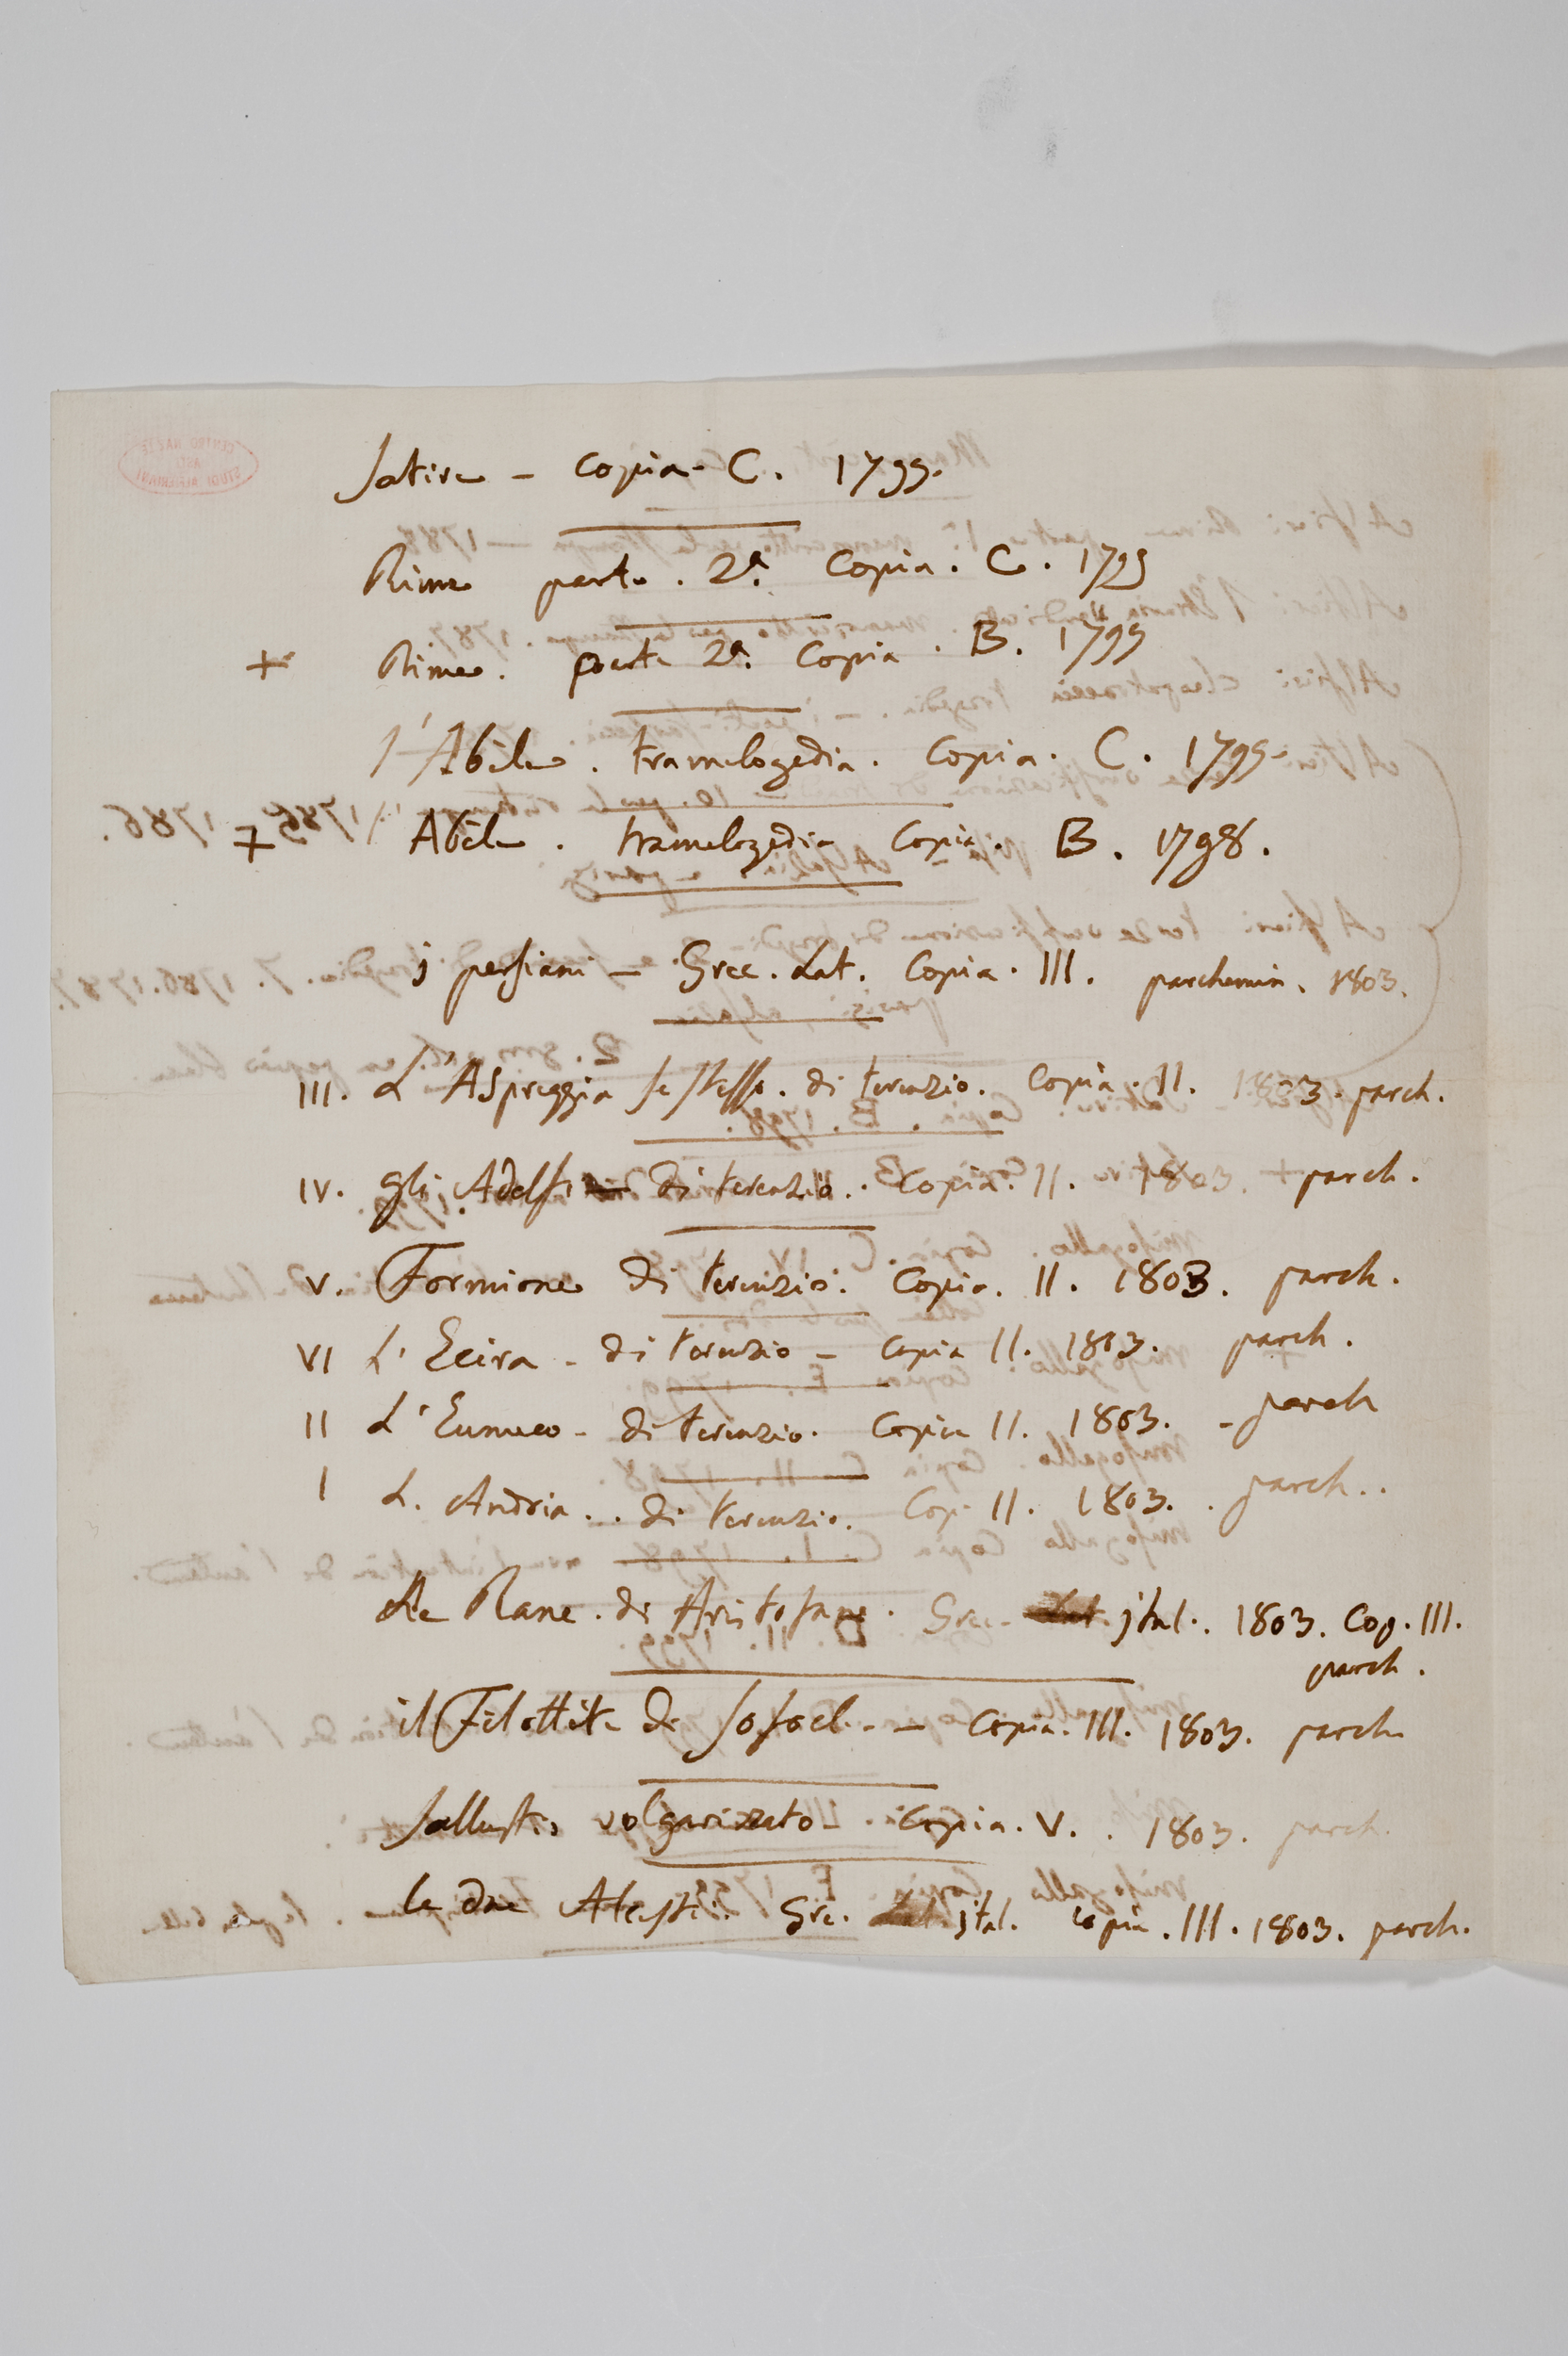 Satire - Copia - C. 1799.
Rime parte. 2ª. Copia. C. 1799
+ Rime. parte 2ª. Copia. B. 1799
l'Abele. tramelogedia. Copia. C. 1799.
+ Abele. tramelogedia Copia. B. 1798.
j persiani - Grec. Lat. Copia. III. parchemin. 1803.
III. L'Aspreggia se stesso. di terenzio. Copia. II. 1803. parch.
IV. gli Adelfi di terenzio. Copia. II. 1803. parch.
V. Formione di terenzio. Copia. II. 1803. parch.
VI L'Ecira - di terenzio - Copia II. 1803. parch.
II L'Eunuco - di terenzio. Copia II. 1803. - parch
I L. Andria.. di terenzio. Cop. II. 1803. parch..
Le Rane. di Aristofane. Grec. jtal. 1803. Cop. III.
parch.
il Filottete di Sofocl. - Copia. III. 1803. parch
Sallustio volgarizzato. Copia. V. 1803. parch.
le due Alcesti. Gre. jtal. copia. III. 1803. parch.